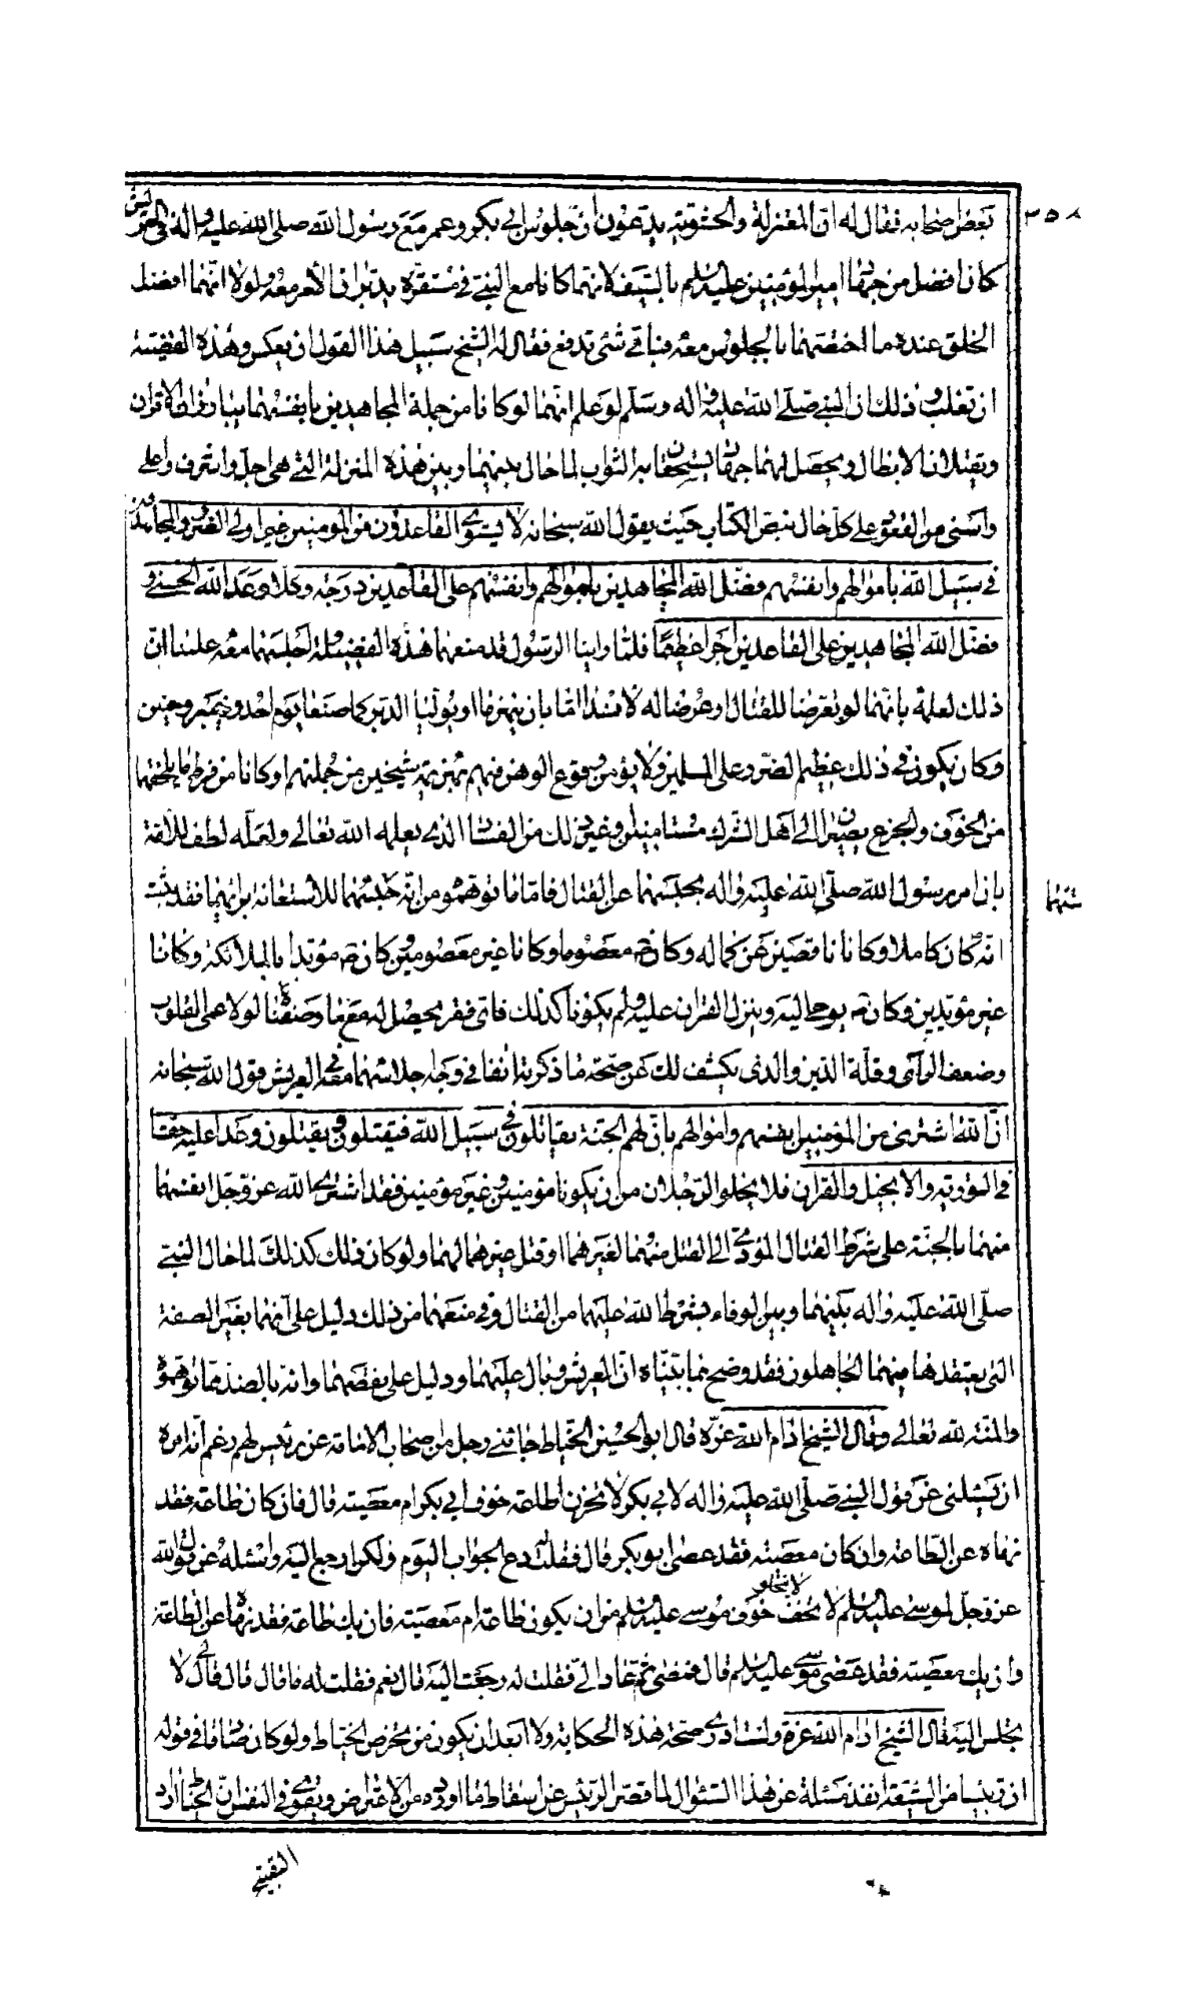 ٣٥٨
بعض اصحابه فقال له ان المعتزلة والحشوية يدعون ان جلوس ابي بكر وعمر مع رسول الله صلى الله عليه واله في العريش
كان افضل من جهاد امير المؤمنين عليه السلم بالسيف لانهما كانا مع النبي في مستقره يدبران الأمر معه ولولا انهما افضل
الخلق عنده ما اختصهما بالجلوس معه فباي شئ تدفع فقال له الشيخ سبيل هذا القول ان يعكس وهذه القضية
ان تقلب وذلك ان النبي صلى الله عليه واله وسلم لو علم انهما لو كانا من جملة المجاهدين بانفسهما يبارزان الاقران
ويقتلان الابطال ويحصل لهما جهاد يستحقان به الثواب لما حال بينهما وبين هذه المنزلة التي هي اجل واشرف واعلى
واسنى من القعود على كل حال بنص الكتاب حيث يقول الله سبحانه لا يستوي القاعدون من المومنين غير اولي الضرر والمجاهدون
في سبيل الله باموالهم وانفسهم فضل الله المجاهدين باموالهم وانفسهم على القاعدين درجة وكلا وعد الله الحسنى و
فضل الله المجاهدين على القاعدين اجرا عظيما فلما راينا الرسول قد منعهما هذه الفضيلة واجلسهما معه علمنا ان
ذلك لعلمه بانهما لو تعرضا للقتال او عرضا له لافسدا اما بان ينهزما او يوليا الدبر كما صنعا يوم احد وخيبر وحنين
وكان يكون في ذلك عظيم الضرر على المسلمين ولا يؤمن وقوع الوهن فيهم بهزيمة شيخين من جملتهم او كانا من فرط ما يلحقهما
من الخوف والجزع يصيران الى اهل الشرك مستامنين او غير ذلك من الفساد الذي يعلمه الله تعالى ولعله لطف للامة
بان امر رسول الله صلى الله عليه واله بحبسهما عن القتال فاما ما توهموه من انه حبسهما للاستعانة برايهما فقد ثبت
انه كان كاملا وكانا ناقصين عن كماله وكان ص معصوما وكانا غير معصومين وكان ص مؤيدا بالملائكة وكانا
غير مؤيدين وكان ص يوحى اليه وينزل القران عليه ولم يكونا كذلك فاي فقر يحصل له مع ما وصفناه لولا عمى القلوب
وضعف الراي وقلة الدين والذي يكشف لك عن صحة ما ذكرناه انفا في وجه اجلاسهما معه في العريش قول الله سبحانه
ان الله اشترى من المؤمنين انفسهم واموالهم بان لهم الجنة يقاتلون في سبيل الله فيقتلون ويقتلون وعدا عليه حقا
في التورية والانجيل والقران فلا يخلو الرجلان من ان يكونا مؤمنين او غير مؤمنين فقد اشترى الله عز وجل انفسهما
منهما بالجنة على شرط القتال المؤدي الى القتل منهما لغيرهما او قتل غيرهما لهما ولو كان ذلك كذلك لما حال النبي
صلى الله عليه واله بينهما وبين الوفاء بشرط الله عليهما من القتال وفي منعهما من ذلك دليل على انهما بغير الصفة
التي يعتقدها فيهما الجاهلون فقد وضح بما بيناه ان العريش وبال عليهما ودليل على نقصهما وانه بالضد مما توهموه
والمنة لله تعالى وقال الشيخ ادام الله عزه قال ابو الحسين الخياط جائني رجل من اصحاب الامامة عن رئيس لهم زعم انه امره
ان يسئلني عن قول النبي صلى الله عليه واله لابي بكر لا تحزن اطاعة خوف ابي بكر ام معصية قال فان كان طاعة فقد
نهاه عن الطاعة وان كان معصية فقد عصى ابو بكر قال فقلت له دع الجواب اليوم ولكن ارجع اليه واسئله عن قول الله
عز وجل لموسى عليه السلم لا تخف لا يخلو خوف موسى عليه السلم من ان يكون طاعة ام معصية فان يك طاعة فقد نهاه عن الطاعة
وان يك معصية فقد عصى موسى عليه السلم قال فمضى ثم عاد الي فقلت له رجعت اليه قال نعم فقلت له ما قال قال قال لي لا
تجلس اليه قال الشيخ ادام الله عزه ولست ادري صحة هذه الحكاية ولا ابعد ان يكون من تخرص الخياط ولو كان صادقا في قوله
ان رئيسا من الشيعة انفذ مسئلة عن هذا السئوال لما قصر الرئيس عن اسقاط ما اورده من الاعتراض ويقوى في النفس ان الخياط اراد